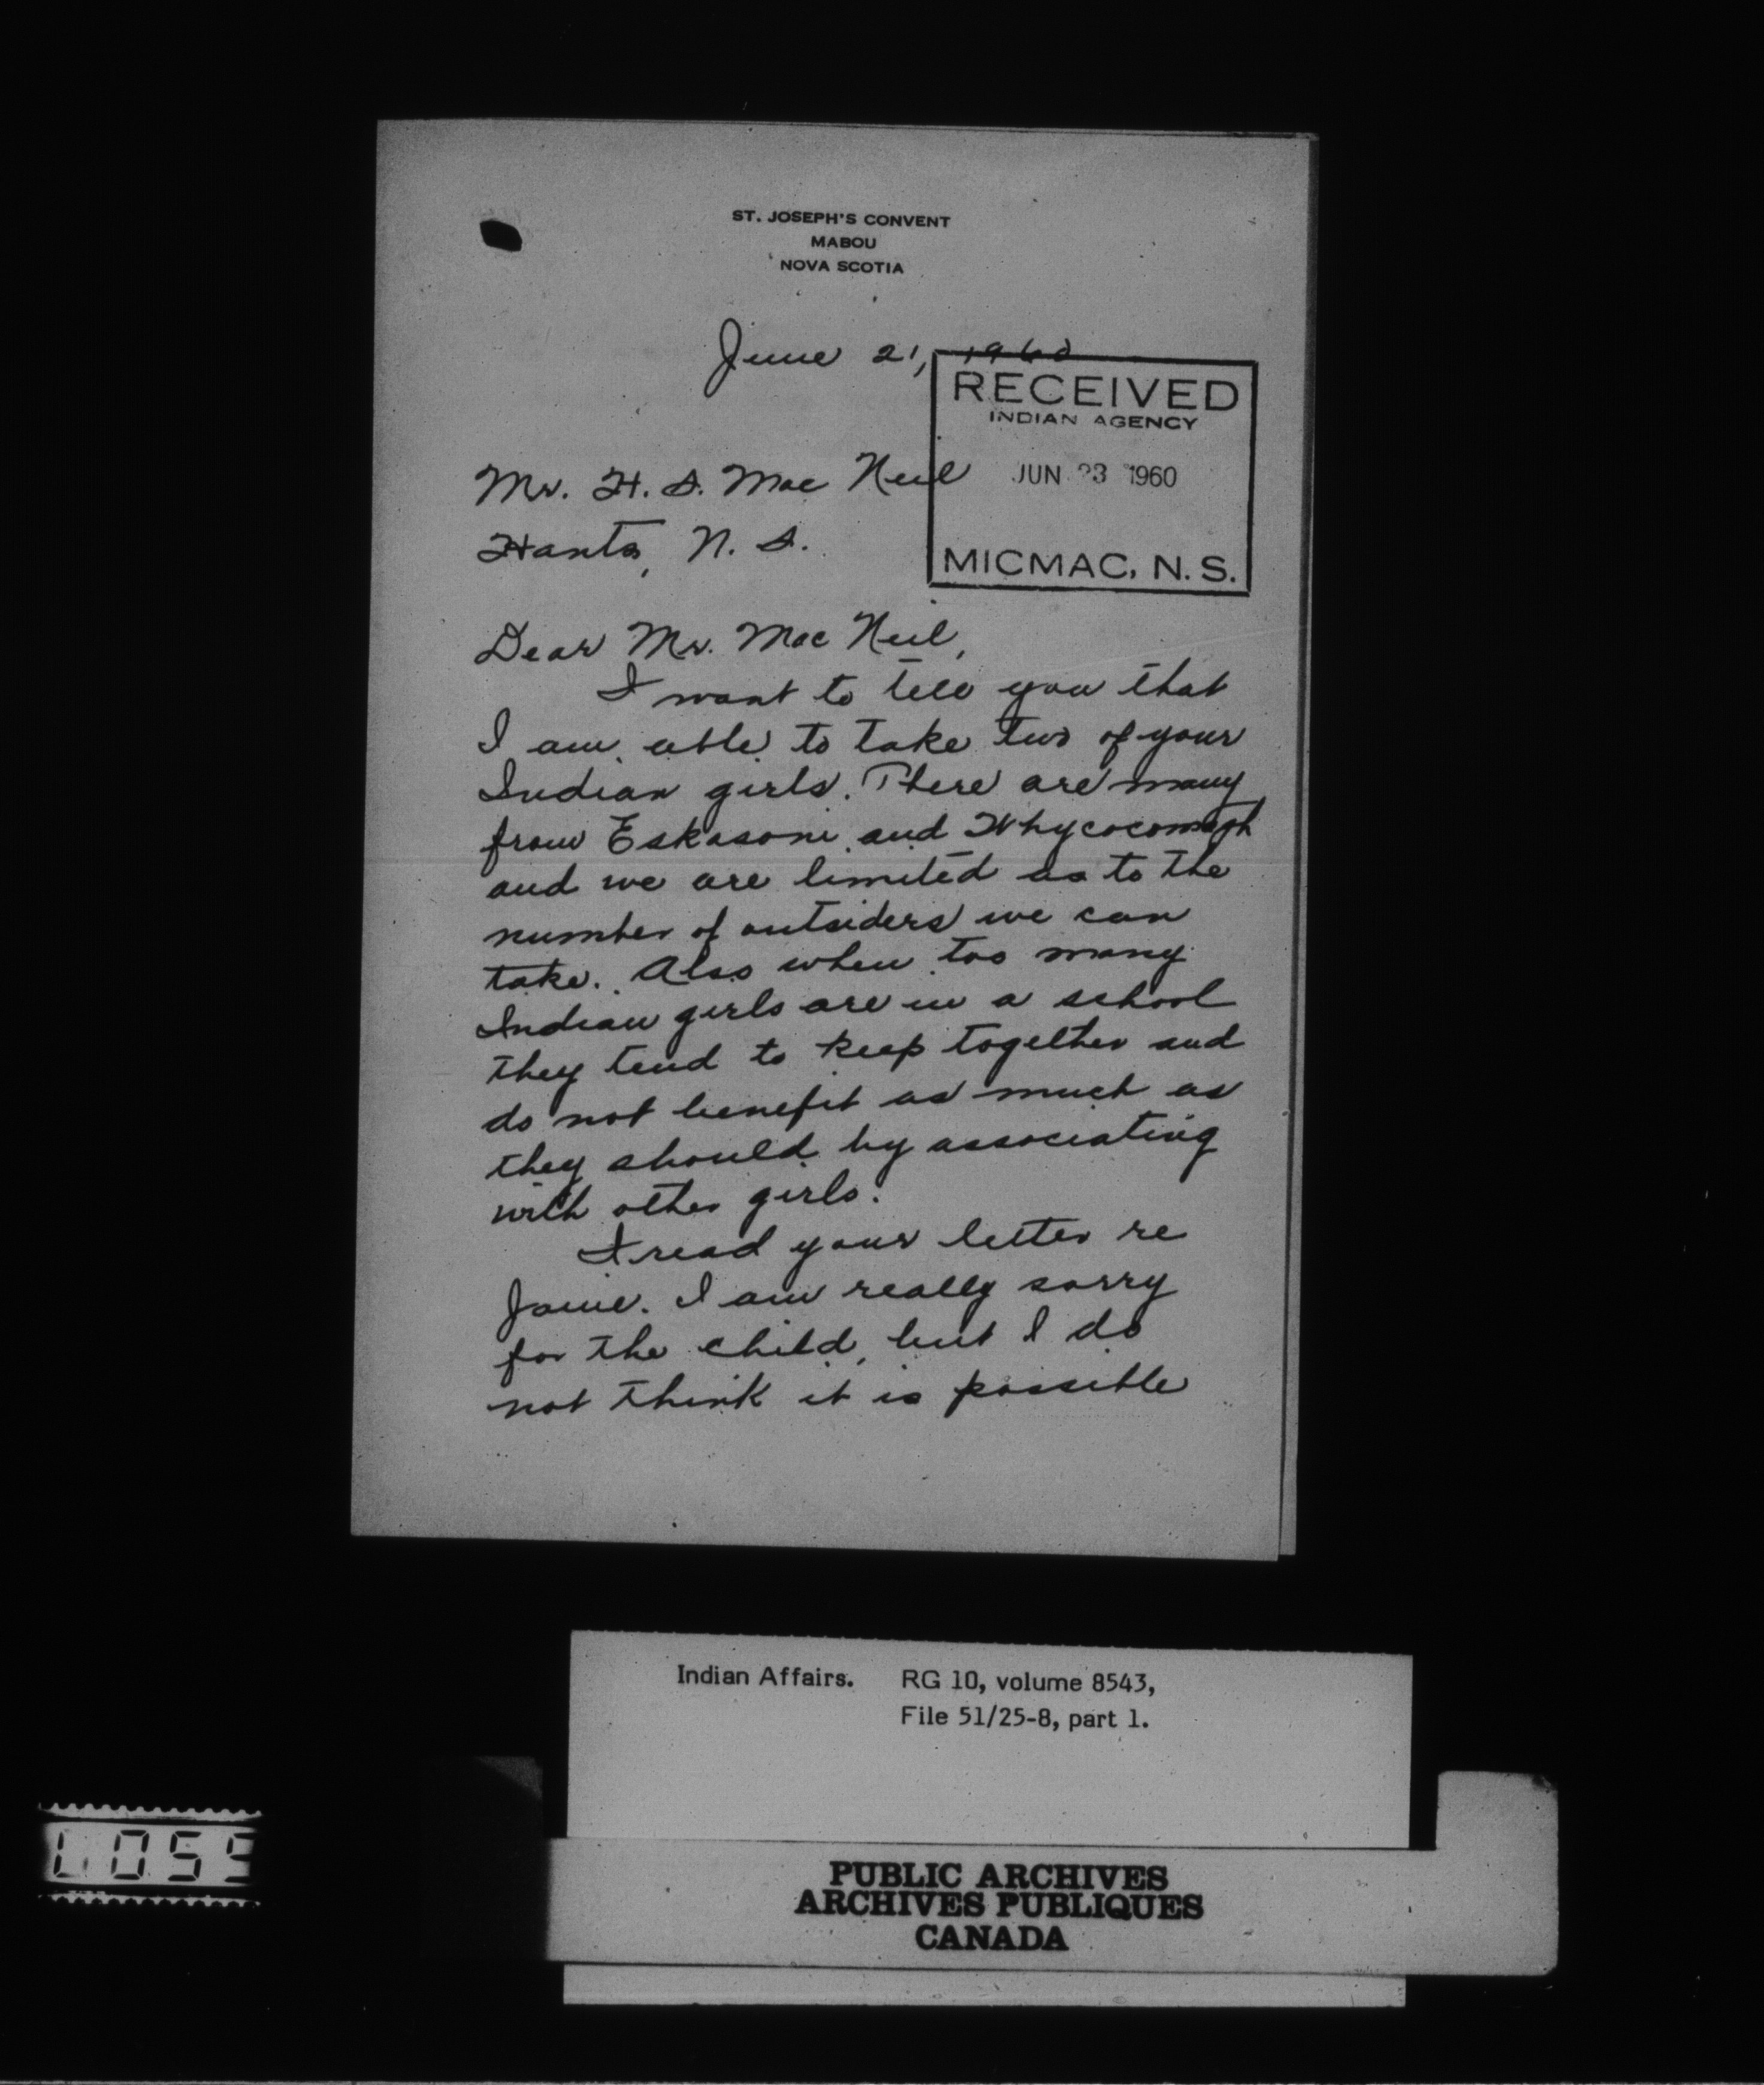 ST. JOSEPH'S CONVENT
MABOU
NOVA SCOTIA
June 21, 1960
RECEIVED
INDIAN AGENCY
JUN 23 1960
MICMAC, N. S.
Mr. H. S. Mac Neil
Hants, N. S.
Dear Mr. Mac Neil,
I want to tell you that
I am able to take two of your
Indian girls. There are many
from Eskasoni and Whycocomagh
and we are limited as to the
number of outsiders we can
take. Also when too many
Indian girls are in a school
they tend to keep together and
do not benefit as much as
they should by associating
with other girls.
I read your letter re
I am really sorry
for the child, but I do
not think it is possible
Indian Affairs. RG 10, volume 8543,
File 51/25-8, part 1.
PUBLIC ARCHIVES
ARCHIVES PUBLIQUES
CANADA